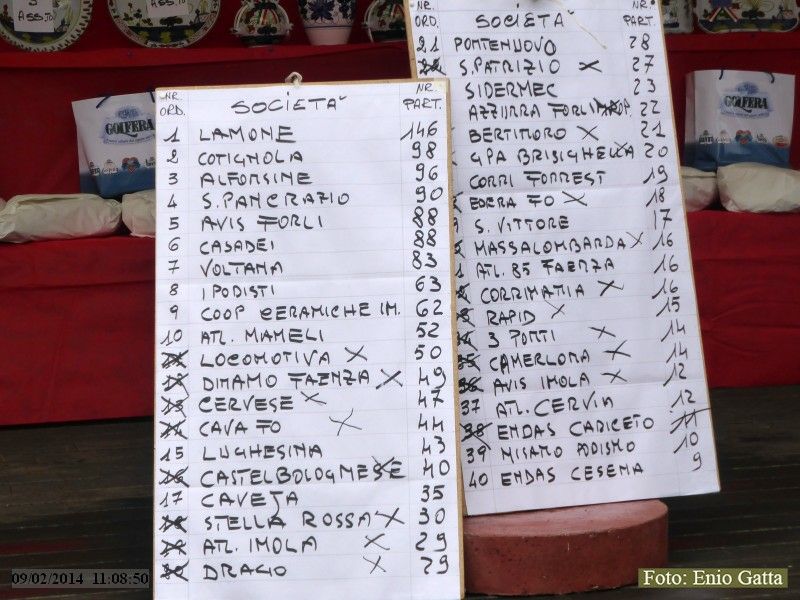 NR. ORD. SOCIETÀ NR. PART.
1 LAMONE 146
2 COTIGNOLA 98
3 ALFONSINE 96
4 S. PANCRAZIO 90
5 AVIS FORLI 88
6 CASADEI 88
7 VOLTANA 83
8 I PODISTI 63
9 COOP CERAMICHE IM. 62
10 ATL. MAMELI 52
LOCOMOTIVA X 50
DINAMO FAENZA X 49
13 CERVESE X 47
CAVA FO X 44
15 LUGHESINA 43
16 CASTELBOLOGNESE 40
17 CAVEJA 35
18 STELLA ROSSA X 30
ATL. IMOLA X 29
DRAGO X 29
ORD. SOCIETÀ NR. PART.
21 PONTENUOVO 28
S. PATRIZIO X 27
SIDERMEC 23
AZZURRA FORLIMPOP. 22
BERTINORO X 21
GPA BRISIGHELLA 20
CORRI FORREST 19
EDERA FO X 18
S. VITTORE 17
MASSALOMBARDA X 16
ATL. 85 FAENZA 16
CORRIMATIA X 16
RAPID X 15
3 PONTI X 14
35 CAMERLONA X 14
36 AVIS IMOLA X 12
37 ATL. CERVIA 12
38 ENDAS CARICETO 11
39 MISANO PODISMO 10
40 ENDAS CESENA 9
GOLFERA
GOLFERA
09/02/2014 11:08:50
Foto: Enio Gatta